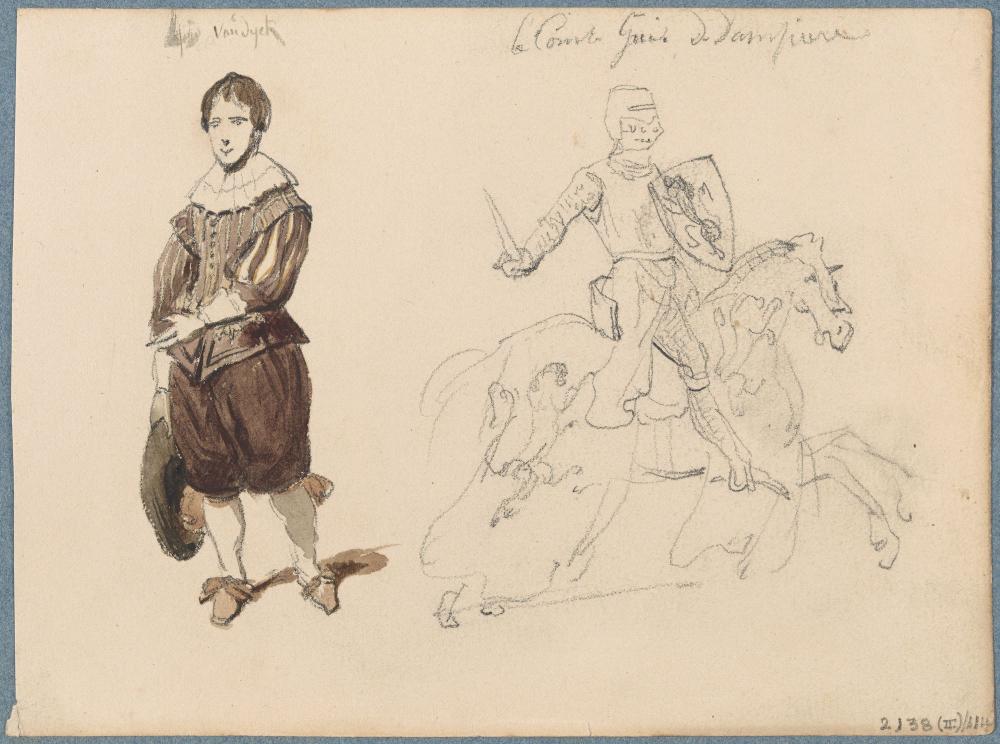 Van Dyck
le Comte Guis de Dampierre
2138 (III)/114